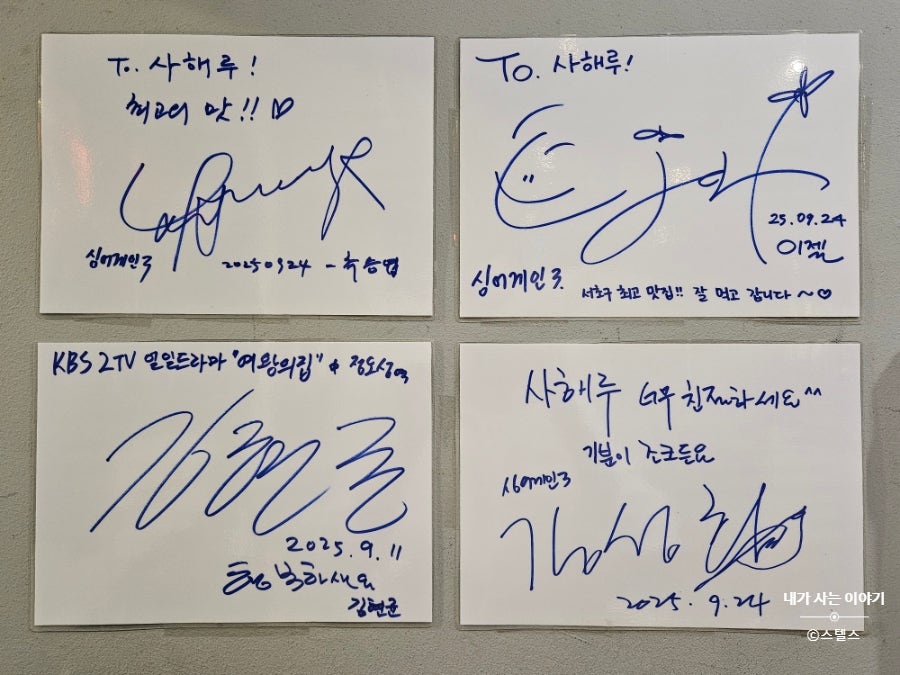 To. 사해루!
최고의 맛!! ♡
싱어게인3
20250924 - 추승엽
To. 사해루!
25.09.24
이젤
싱어게인3.
서초구 최고 맛집!! 잘 먹고 갑니다~♡
KBS 2TV 일일드라마 "여왕의집" & 정도성역
김현균
2025.9.11
행복하세요
김현균
사해루 너무 친절하세요^^
기분이 조크든요
싱어게인3
2025. 9.24
내가 사는 이야기
©스텔스